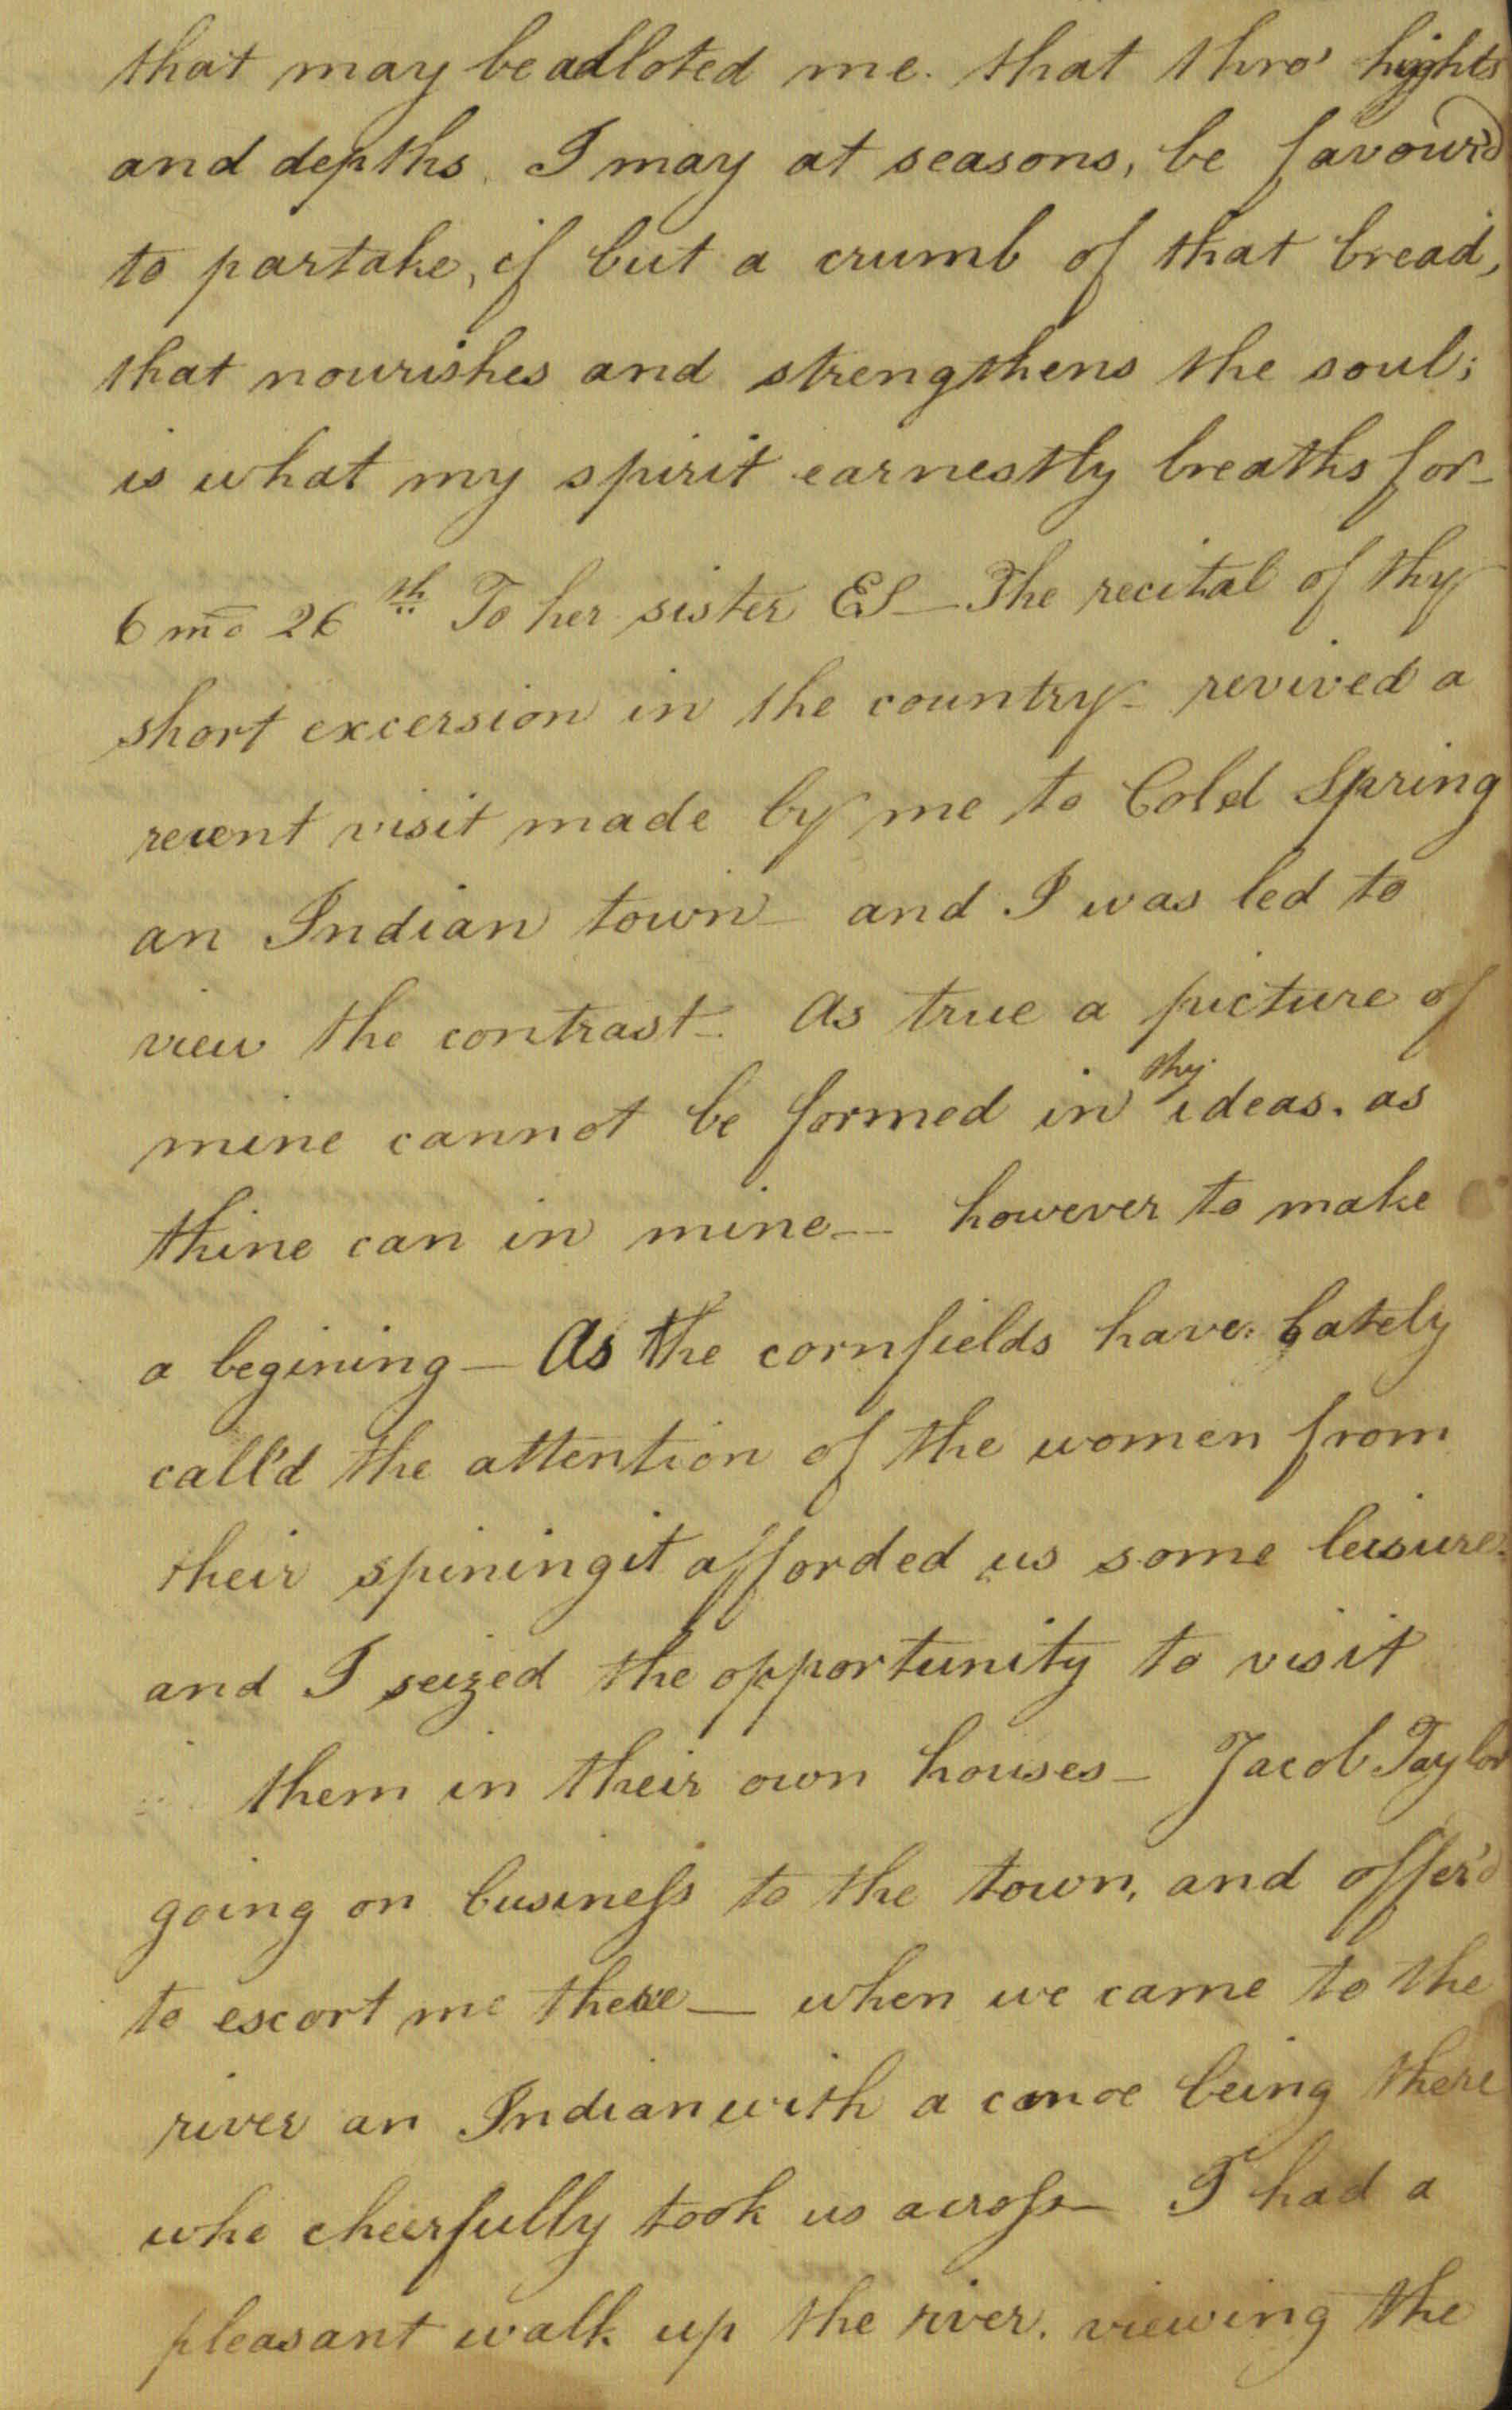 that may be adloted me. that thro' hights
and depths. I may at seasons, be favour'd
to partake, if but a crumb of that bread,
that nourishes and strengthens the soul;
is what my spirit earnestly breaths for_
6 mo 26th To her sister ES_ The recital of thy
short excersion in the country_ revived a
recent visit made by me to Cold Spring
an Indian town_ and I was led to
view the contrast_ As true a picture of
mine cannot be formed in thy ideas. as
thine can in mine__ however to make
a begining_ As the cornfields have lately
call'd the attention of the women from
their spining it afforded us some leisure
and I seized the opportunity to visit
them in their own houses_ Jacob Taylor
going on busineſs to the town, and offer'd
to escort me there_ when we came to the
river an Indian with a canoe being there
who cheerfully took us acroſs_ I had a
pleasant walk up the river. viewing the